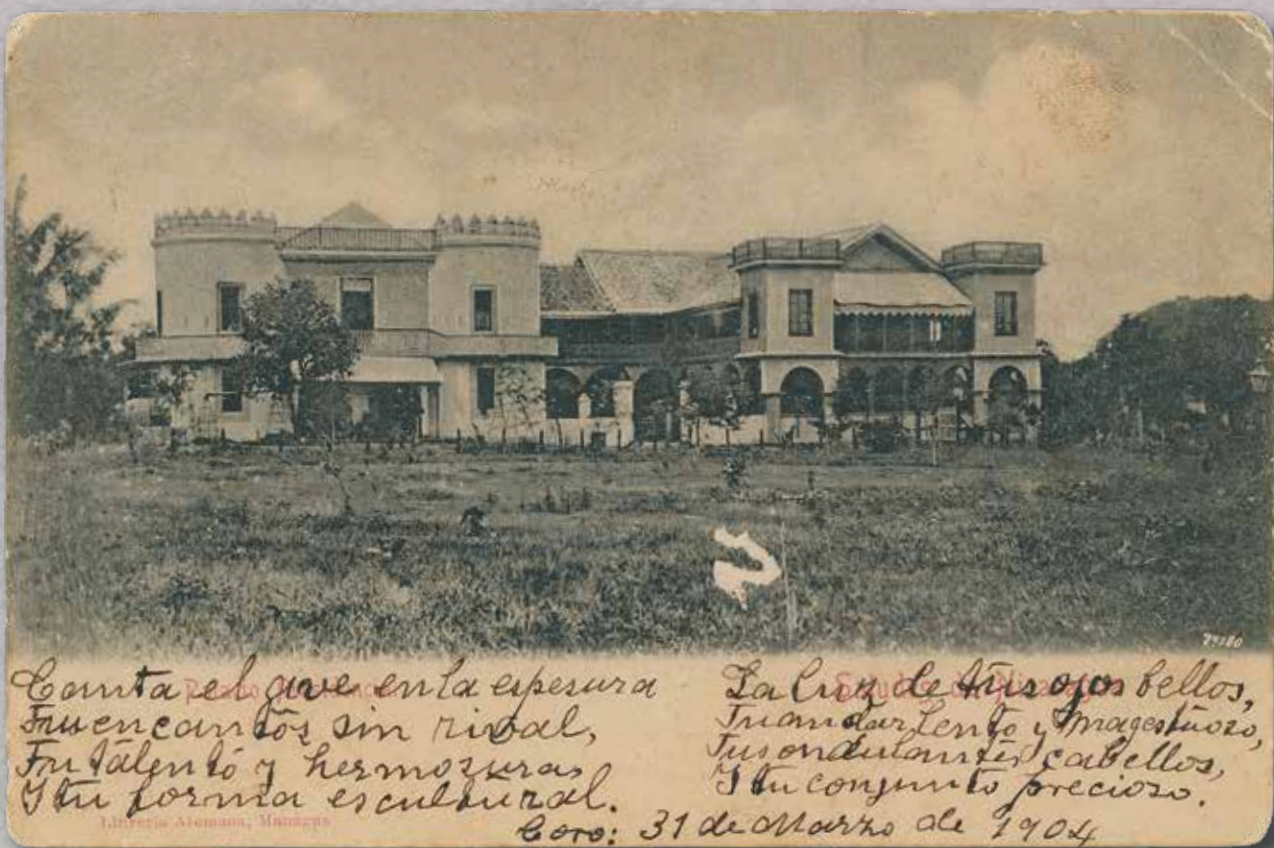 Canta el ave en la espesura
Tus encantos sin rival,
Tu talento y hermosura
Y tu forma escultural.
La luz de tus ojos bellos,
Tu andar lento y magestuoso,
Tus ondulantes cabellos,
Y tu conjunto precioso.
Coro: 31 de Marzo de 1904
Librería Alemana, Managua